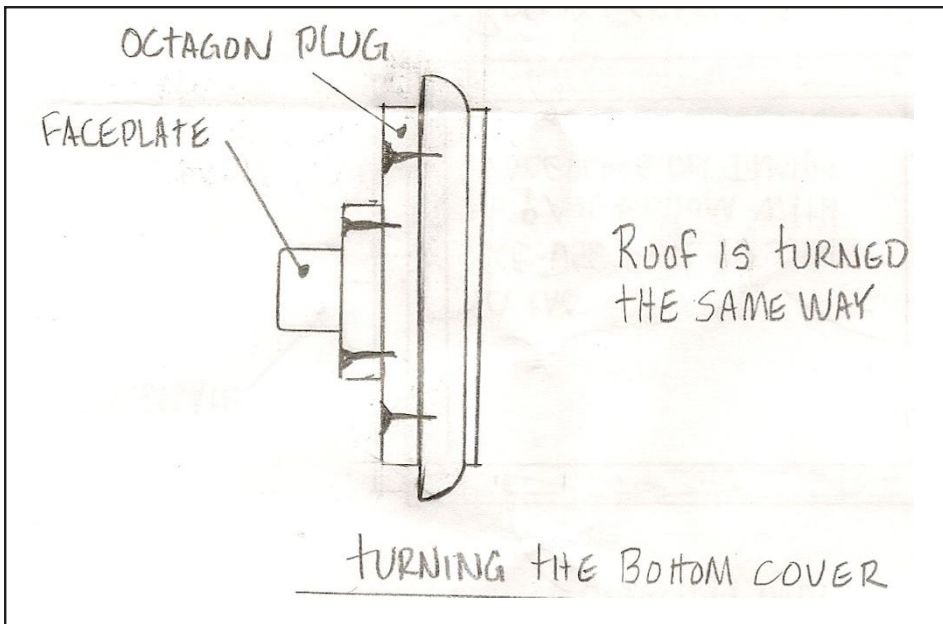 OCTAGON PLUG
FACEPLATE
ROOF IS TURNED
THE SAME WAY
TURNING THE BOTTOM COVER